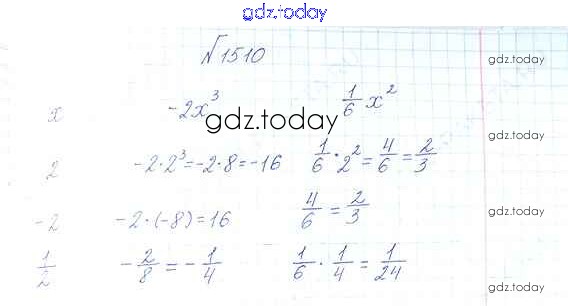 gdz.today
№1510
gdz.today
x -2x³ 1/6 x²
gdz.today
2 -2·2³=-2·8=-16 1/6·2²=4/6=2/3
gdz.today
-2 -2·(-8)=16 4/6=2/3
gdz.today
1/2 -2/8=-1/4 1/6·1/4=1/24
gdz.today